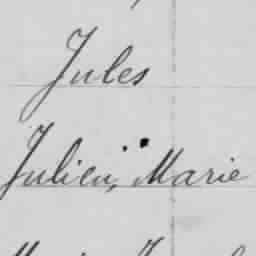 Jules
Julien, Marie